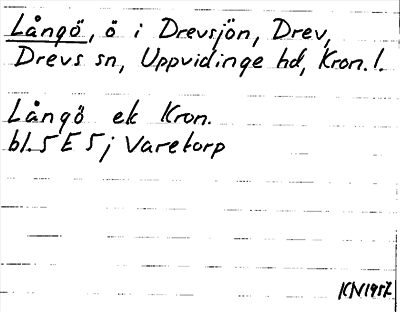 Långö, ö i Drevsjön, Drev,
Drevs sn, Uppvidinge hd, Kron. l.
Långö ek Kron.
bl. 5 E 5 j Varetorp
KN 1957